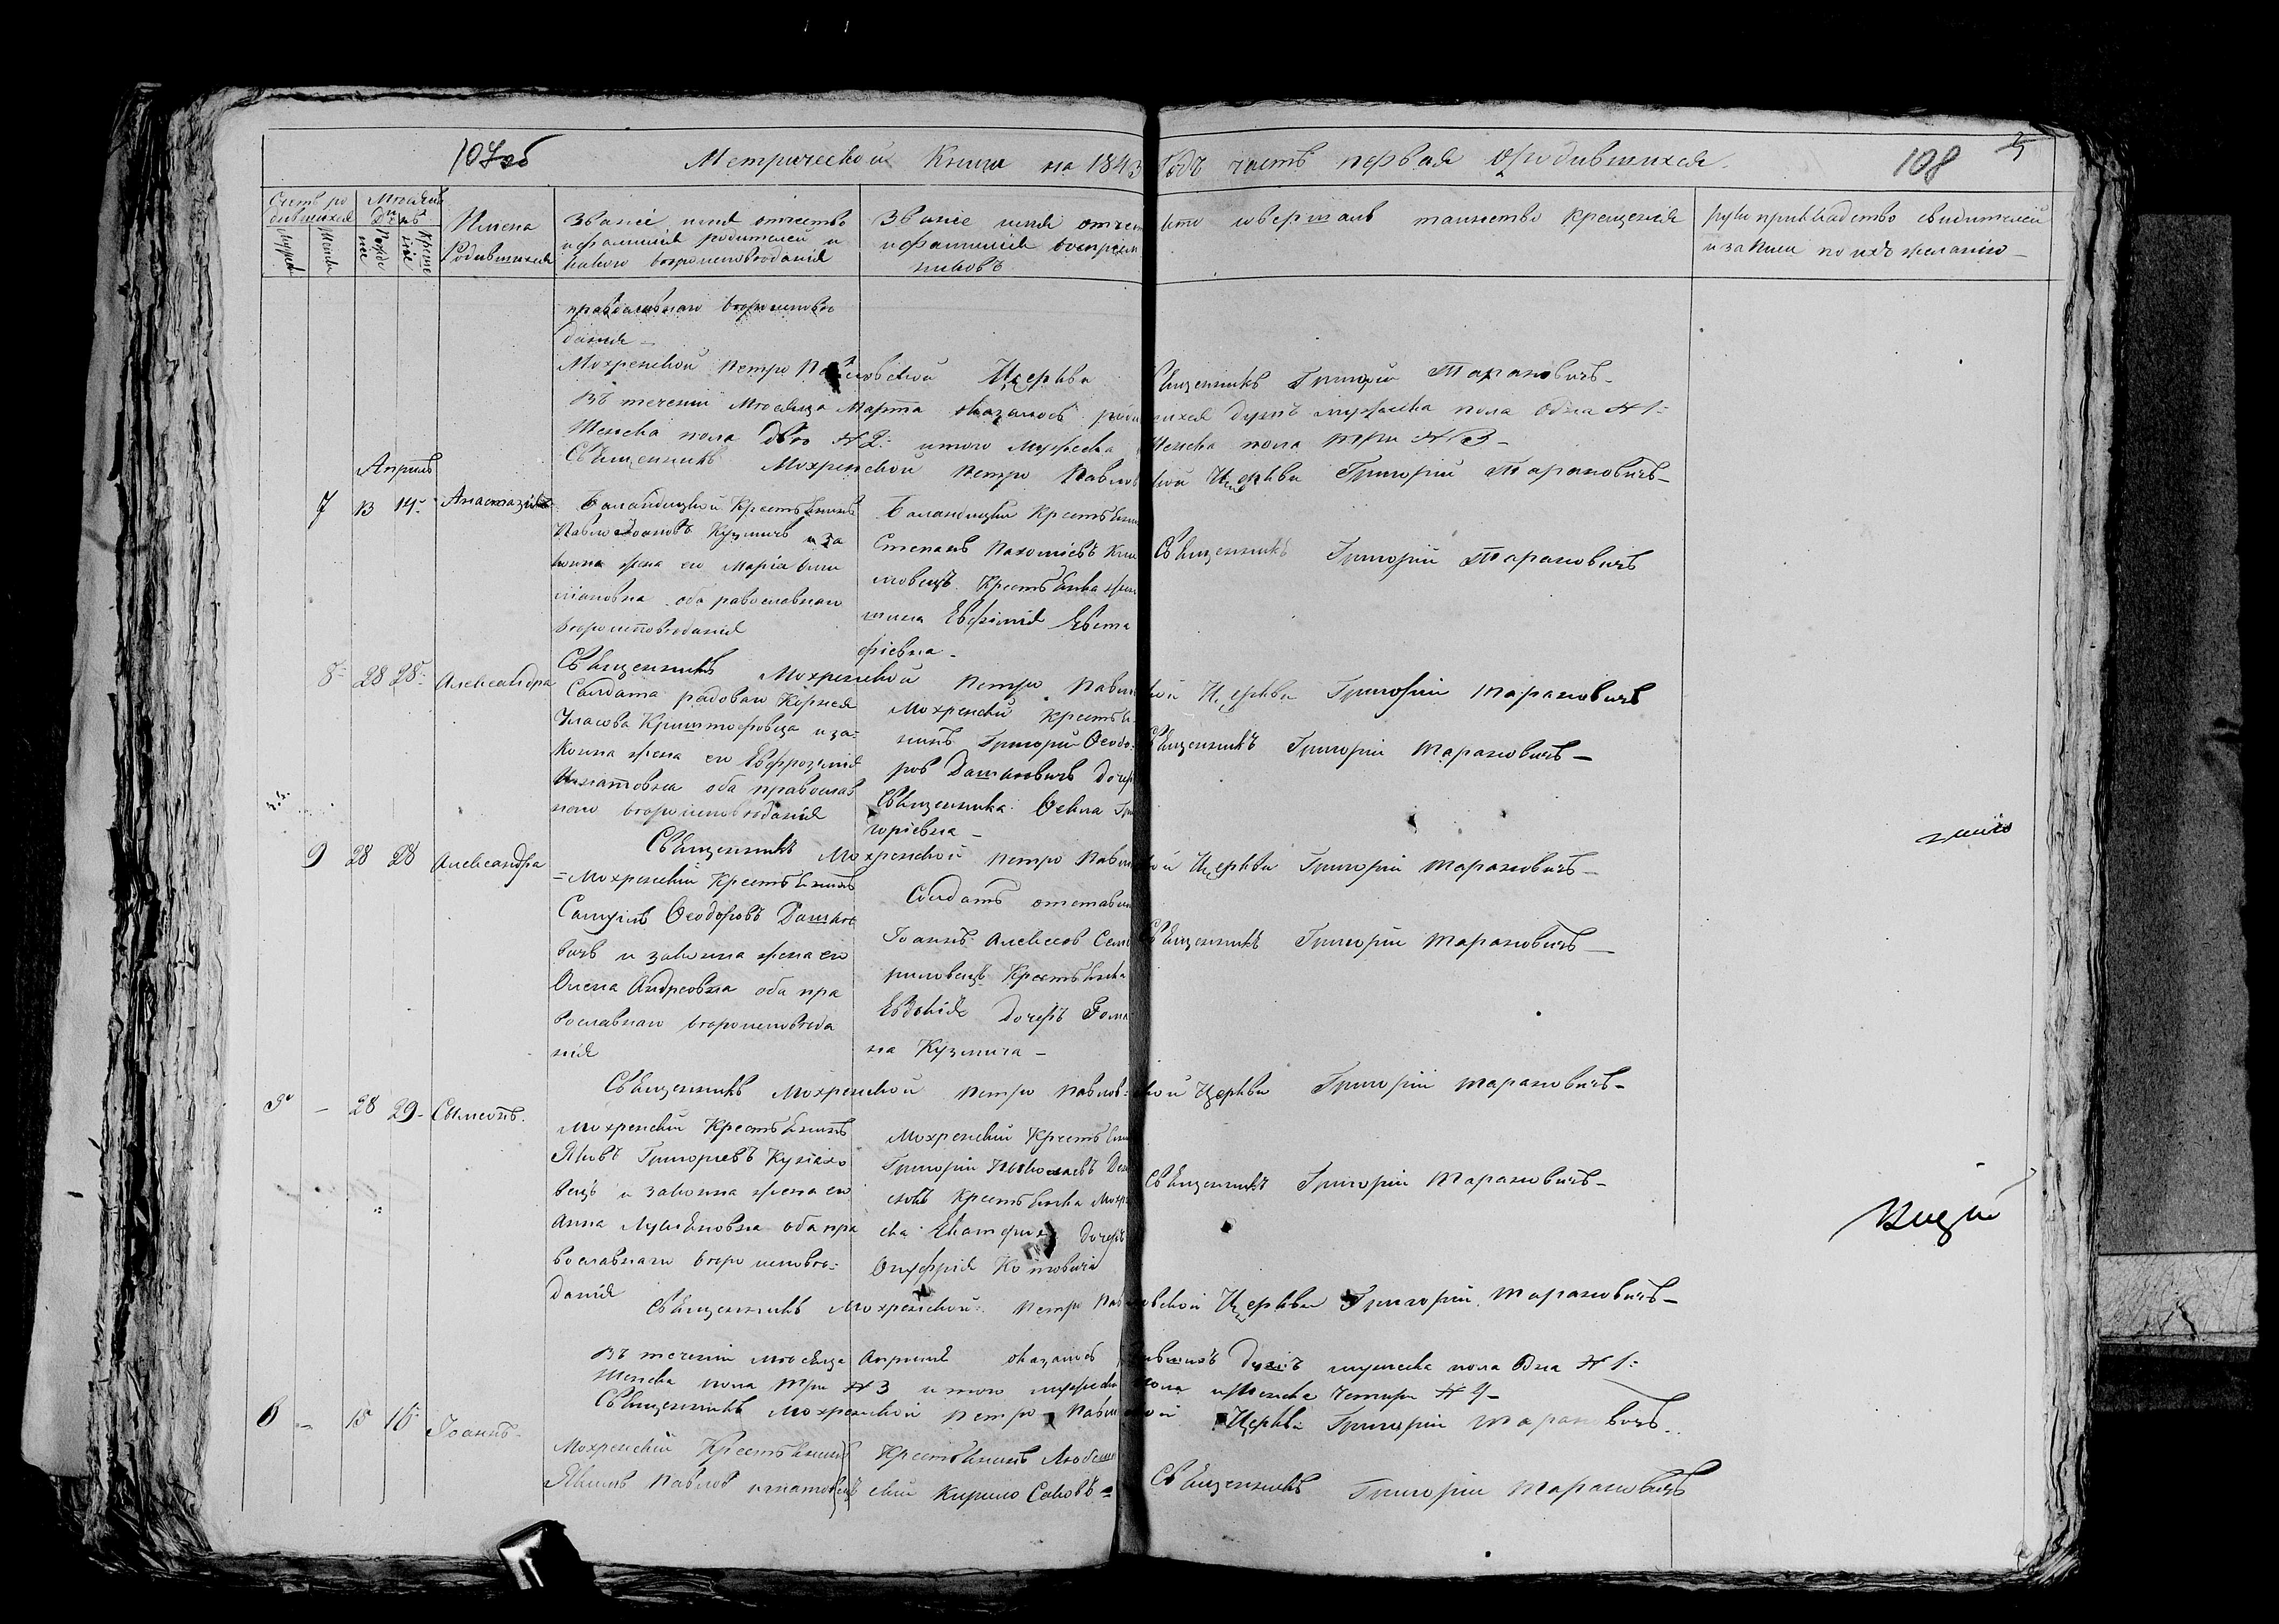 107об
Метрической Книги на 1843 Годъ часть первая о родившихся.
108
Счетъ родившихся
Мужеска
Женска
Месяцъ День
Рождение
Крещеніе
Имена Родившихся
Званіе имя отчество и фамилія родителей и какого вероисповеданія
Званіе имя отчество и фамилія воспріемниковъ
Кто совершалъ таинство крещенія
Рукоприкладство свидетелей и записи по ихъ желанію
православнаго вероисповеданія
Мохренской Петро Павловской Церкви Священникъ Григорій Тарановичъ
Въ теченіи Месяца Марта оказалось родившихся душъ мужеска пола одна № 1:
Женска пола две № 2: итого мужеска Женска пола три № 3
Священникъ Мохренской Петро Павловской Церкви Григорій Тарановичъ
Апрель
7 13 14 Анастазія
Баландицкой Крестьянинъ
Павло Іоановъ Кузмичъ и за
конна жена его Марія
оба равославнаго
вероисповеданія
Баландицкій Крестьянинъ
Степанъ Пахоміевъ Кли
мовецъ Крестьянка
Евфимія Евста
фіевна
Священникъ Григорій Тарановичъ
Священникъ Мохренской Петро Павловской Церкви Григорій Тарановичъ
8 28 28 Александра
Солдата радоваго Корнея
Уласова Криштофовца и за
конна жена его Евфрозинія
Игнатовна оба православ
наго вероисповеданія
Мохренскій Крестья
нинъ Григорій Феодо
ровъ Дашковичъ дочерь
Священника Фекла Гри
горіевна
Священникъ Григорій Тарановичъ
Священникъ Мохренской Петро Павловской Церкви Григорій Тарановичъ
9 28 28 Александра
Мохренскій Крестьянинъ
Самуилъ Феодоровъ Дашко
вичъ и законна жена его
Олена Андреовна оба пра
вославнаго вероисповеда
нія
Солдатъ отставн
Іоаннъ Алексеов Сем
риковецъ Крестьянка
Евдокія дочерь Рома
на Кузмича
Священникъ Григорій Тарановичъ
Священникъ Мохренской Петро Павловской Церкви Григорій Тарановичъ
5 28 29 Сымеонъ
Мохренскій Крестьянинъ
Яковъ Григориевъ Куліахо
вецъ и законна жена его
Анна Лукьяновна оба пра
вославнаго вероисповее
данія
Мохренскій Крестьянинъ
Григорій Николаевъ Дени
сюкъ Крестьянка Мохрен
ска Екатерина дочерь
Онуфрія Котовича
Священникъ Григорій Тарановичъ
Священникъ Мохренской Петро Павловской Церкви Григорій Тарановичъ
Въ теченіи Месяца Апреля оказалось родившихъ душъ мужеска пола одна № 1:
Женска пола три № 3 итого мужеска пола и женска четыри № 4
Священникъ Мохренской Петро Павловской Церкви Григорій Тарановичъ
6 15 16 Іоаннъ
Мохренскій Крестьянинъ
Якимъ Павловъ Игнатовецъ
Крестьянинъ Любешов
скій Кирило Саковъ
Священникъ Григорій Тарановичъ